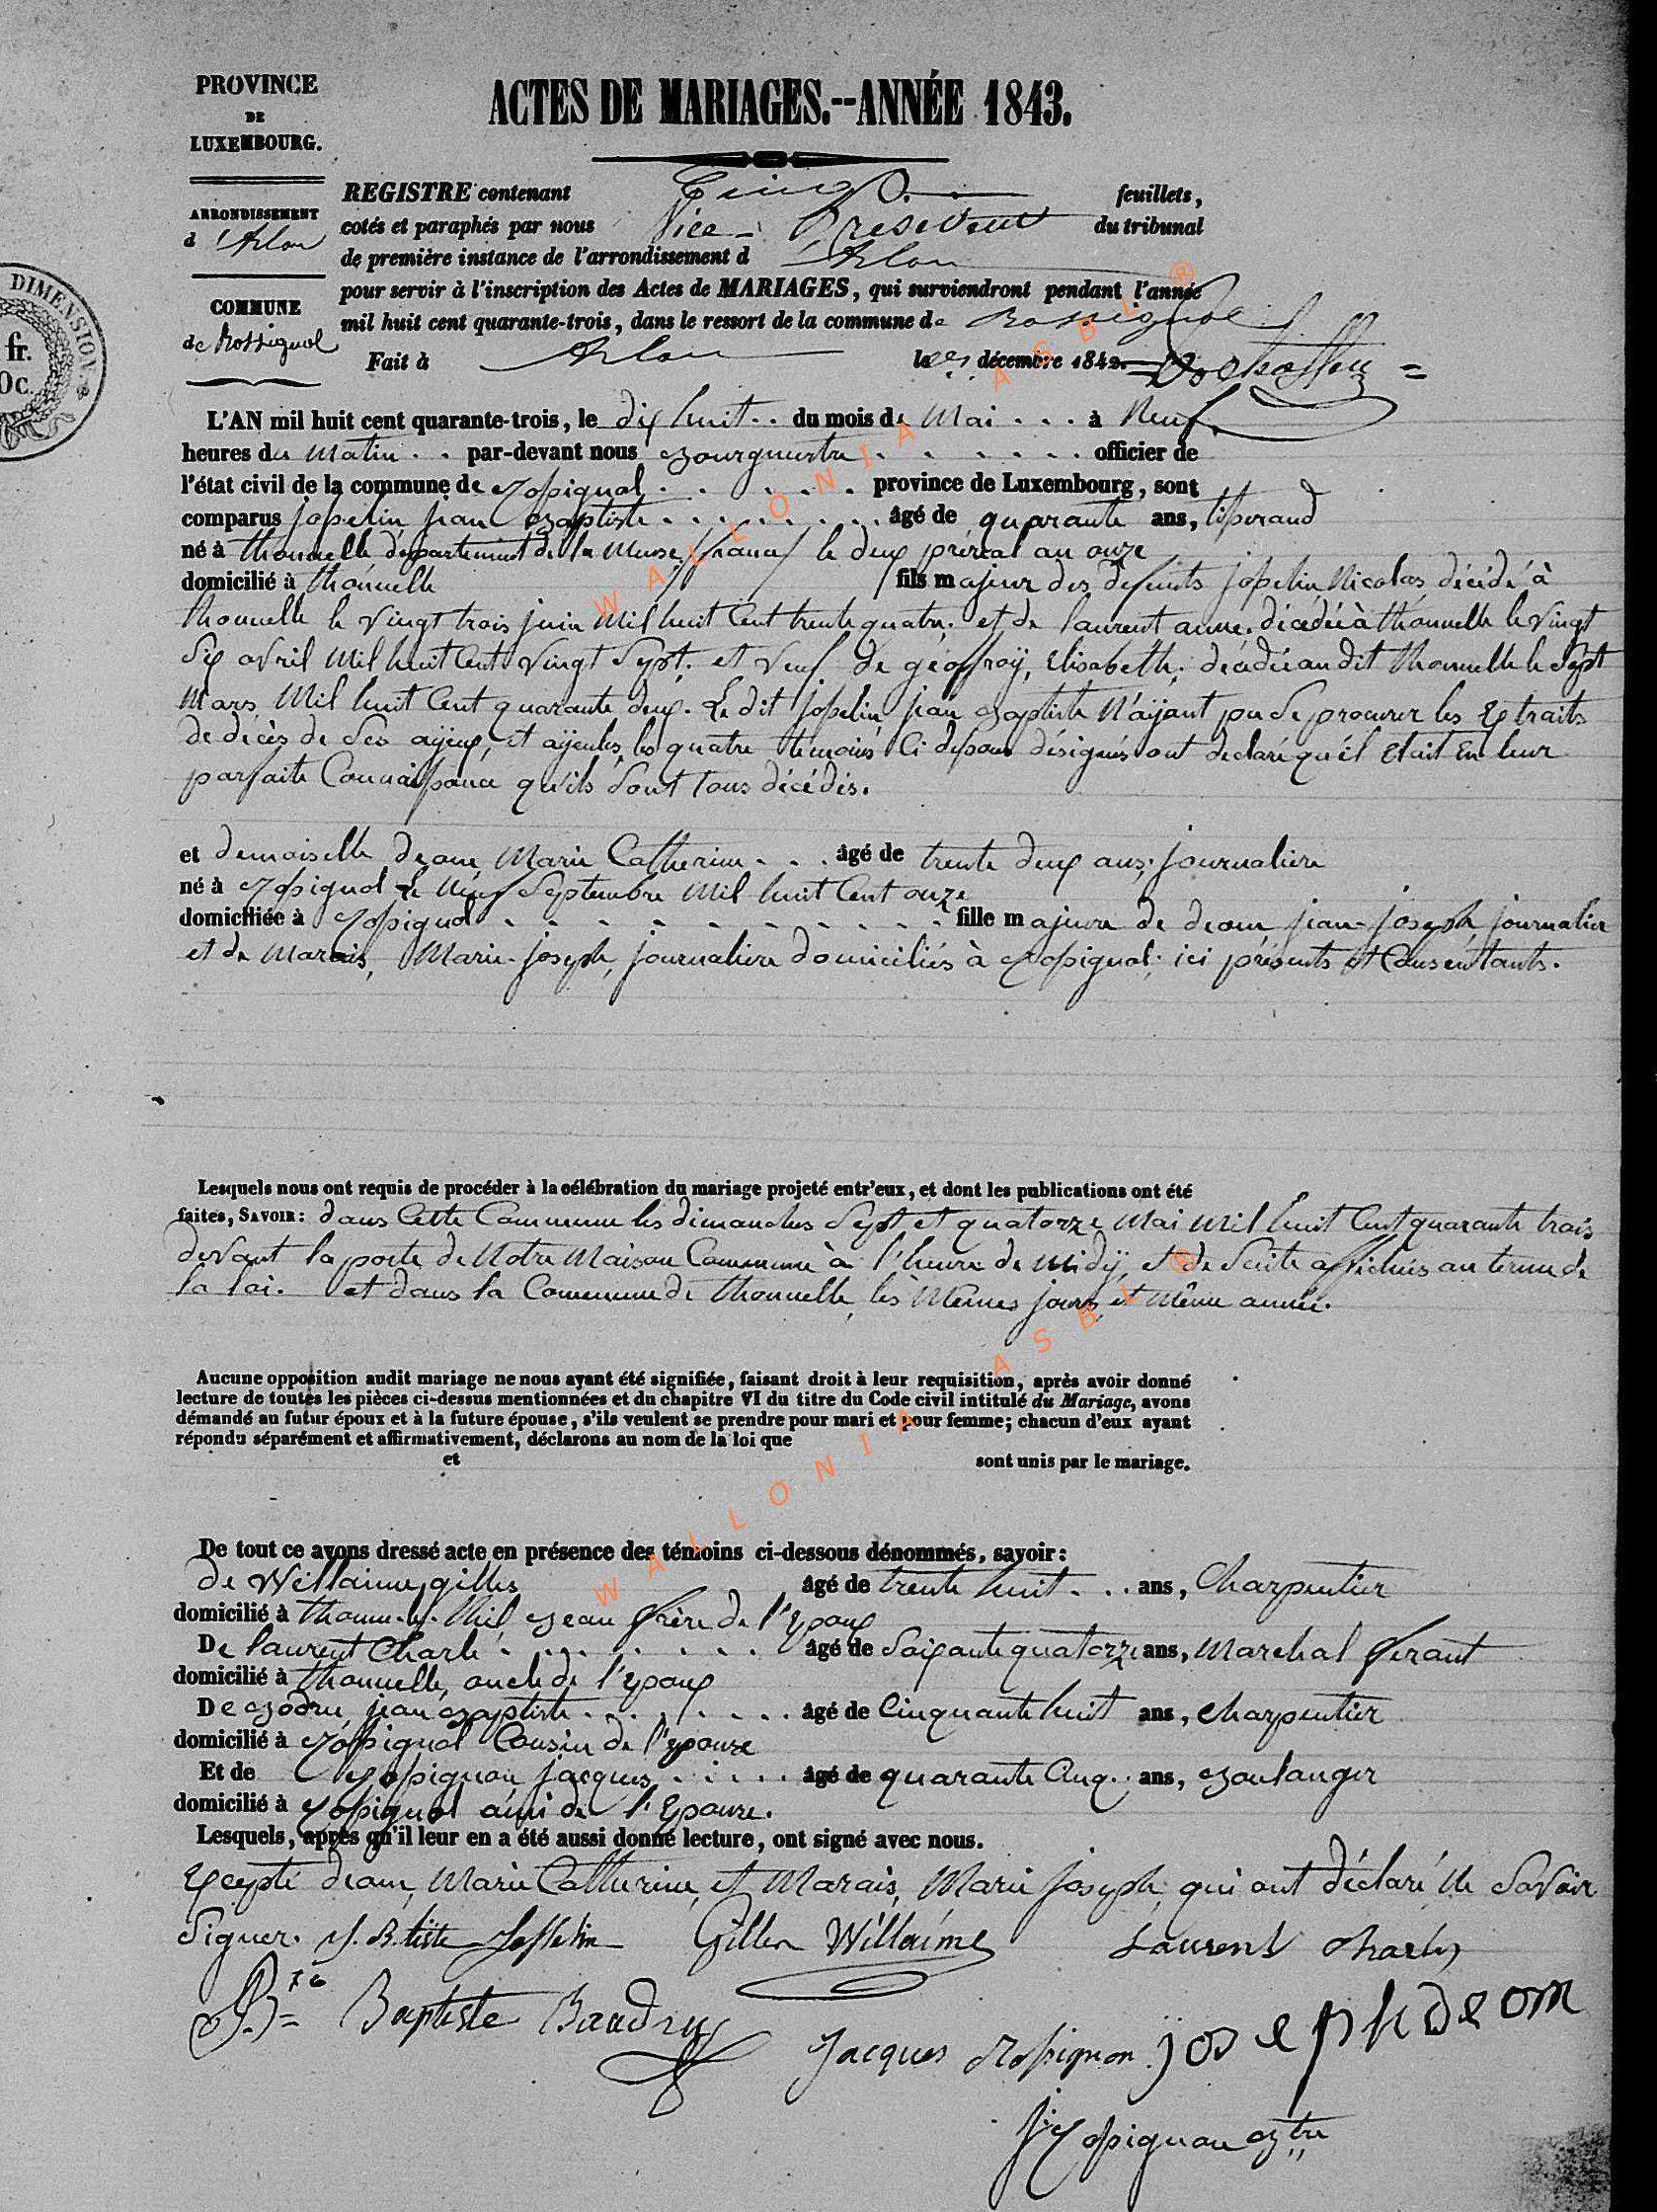 PROVINCE
DE
LUXEMBOURG.
ACTES DE MARIAGES.--ANNÉE 1843.
ARRONDISSEMENT
d'Arlon
COMMUNE
de Rossignol
DIMENSION.
fr.
0c.
REGISTRE contenant Cinq feuillets,
cotés et paraphés par nous Vice-Président du tribunal
de première instance de l'arrondissement d'Arlon
pour servir à l'inscription des Actes de MARIAGES, qui surviendront pendant l'année
mil huit cent quarante-trois, dans le ressort de la commune de Rossignol
Fait à Arlon le décembre 1842.
L'AN mil huit cent quarante-trois, le dix huit du mois de Mai à Neuf
heures du Matin par-devant nous Bourgmestre officier de
l'état civil de la commune de Rossignol province de Luxembourg, sont
comparus josselin jean Baptiste âgé de quarante ans, tisserand
né à thonnelle département de la Meuse (france) le deux préréal an onze
domicilié à thonnelle fils majeur des defunts josselin Nicolas, décédé à
thonnelle le vingt trois juin Mil huit Cent trente quatre. et de laurent anne, décédée à thonnelle le vingt
Six avril Mil huit Cent Vingt Sept. et Veuf de géoffroÿ, Elisabeth, décédée au dit thonnelle le Sept
Mars Mil huit Cent quarante deux. Le dit josselin jean Baptiste N'aÿant pu Se procurer les Extraits
de décès de Ses aÿeux, et aÿeules, les quatre témoins Ci dessous désignés ont declaré qu'il Etait En leur
parfaite Connaissance qu'ils Sont tous décédés.
et demoiselle deom Marie Catherine âgé de trente deux ans, journalière
né à Rossignol Le Neuf Septembre Mil huit Cent onze
domiciliée à Rossignol fille majeure de deom, jean-joseph, journalier
et de Marais, Marie-joseph, journalière domiciliés à Rossignol; ici présents et Consentants.
Lesquels nous ont requis de procéder à la célébration du mariage projeté entr'eux, et dont les publications ont été
faites, SAVOIR: dans Cette Commune les dimanches Sept et quatorze Mai Mil huit Cent quarante trois
devant la porte de Notre Maison Commune à l'heure de Midÿ, et de Suite affichés au terme de
la loi. et dans la Commune de thonnelle, les Mêmes jours et Même année.
Aucune opposition audit mariage ne nous ayant été signifiée, faisant droit à leur requisition, après avoir donné
lecture de toutes les pièces ci-dessus mentionnées et du chapitre VI du titre du Code civil intitulé du Mariage, avons
démandé au futur époux et à la future épouse, s'ils veulent se prendre pour mari et pour femme; chacun d'eux ayant
répondu séparément et affirmativement, déclarons au nom de la loi que
et sont unis par le mariage.
De tout ce avons dressé acte en présence des témoins ci-dessous dénommés, savoir:
de Willaime, gilles âgé de trente huit ans, Charpentier
domicilié à Beau frère de l'Epoux
De laurent Charle âgé de Soixante quatorze ans, Marchal ferant
domicilié à thonnelle, oncle de l'Epoux
De Bodru, jean Baptiste âgé de Cinquante huit ans, Charpentier
domicilié à Rossignol Cousin de l'Epouse
Et de Rossignon jacques âgé de quarante Cinq ans, Boulanger
domicilié à Rossignol ami de l'Epouse.
Lesquels, après qu'il leur en a été aussi donné lecture, ont signé avec nous.
Excepté deom, Marie Catherine, et Marais, Marie joseph, qui ont déclaré Ne Savoir
Signer. J. B.tiste Josselin Gilles Willaime Laurent Charles
Baptiste Baudru Jacques Rossignon joseph deom
J Rossignon Btre
WALLONIA ASBL ®
WALLONIA ASBL ®